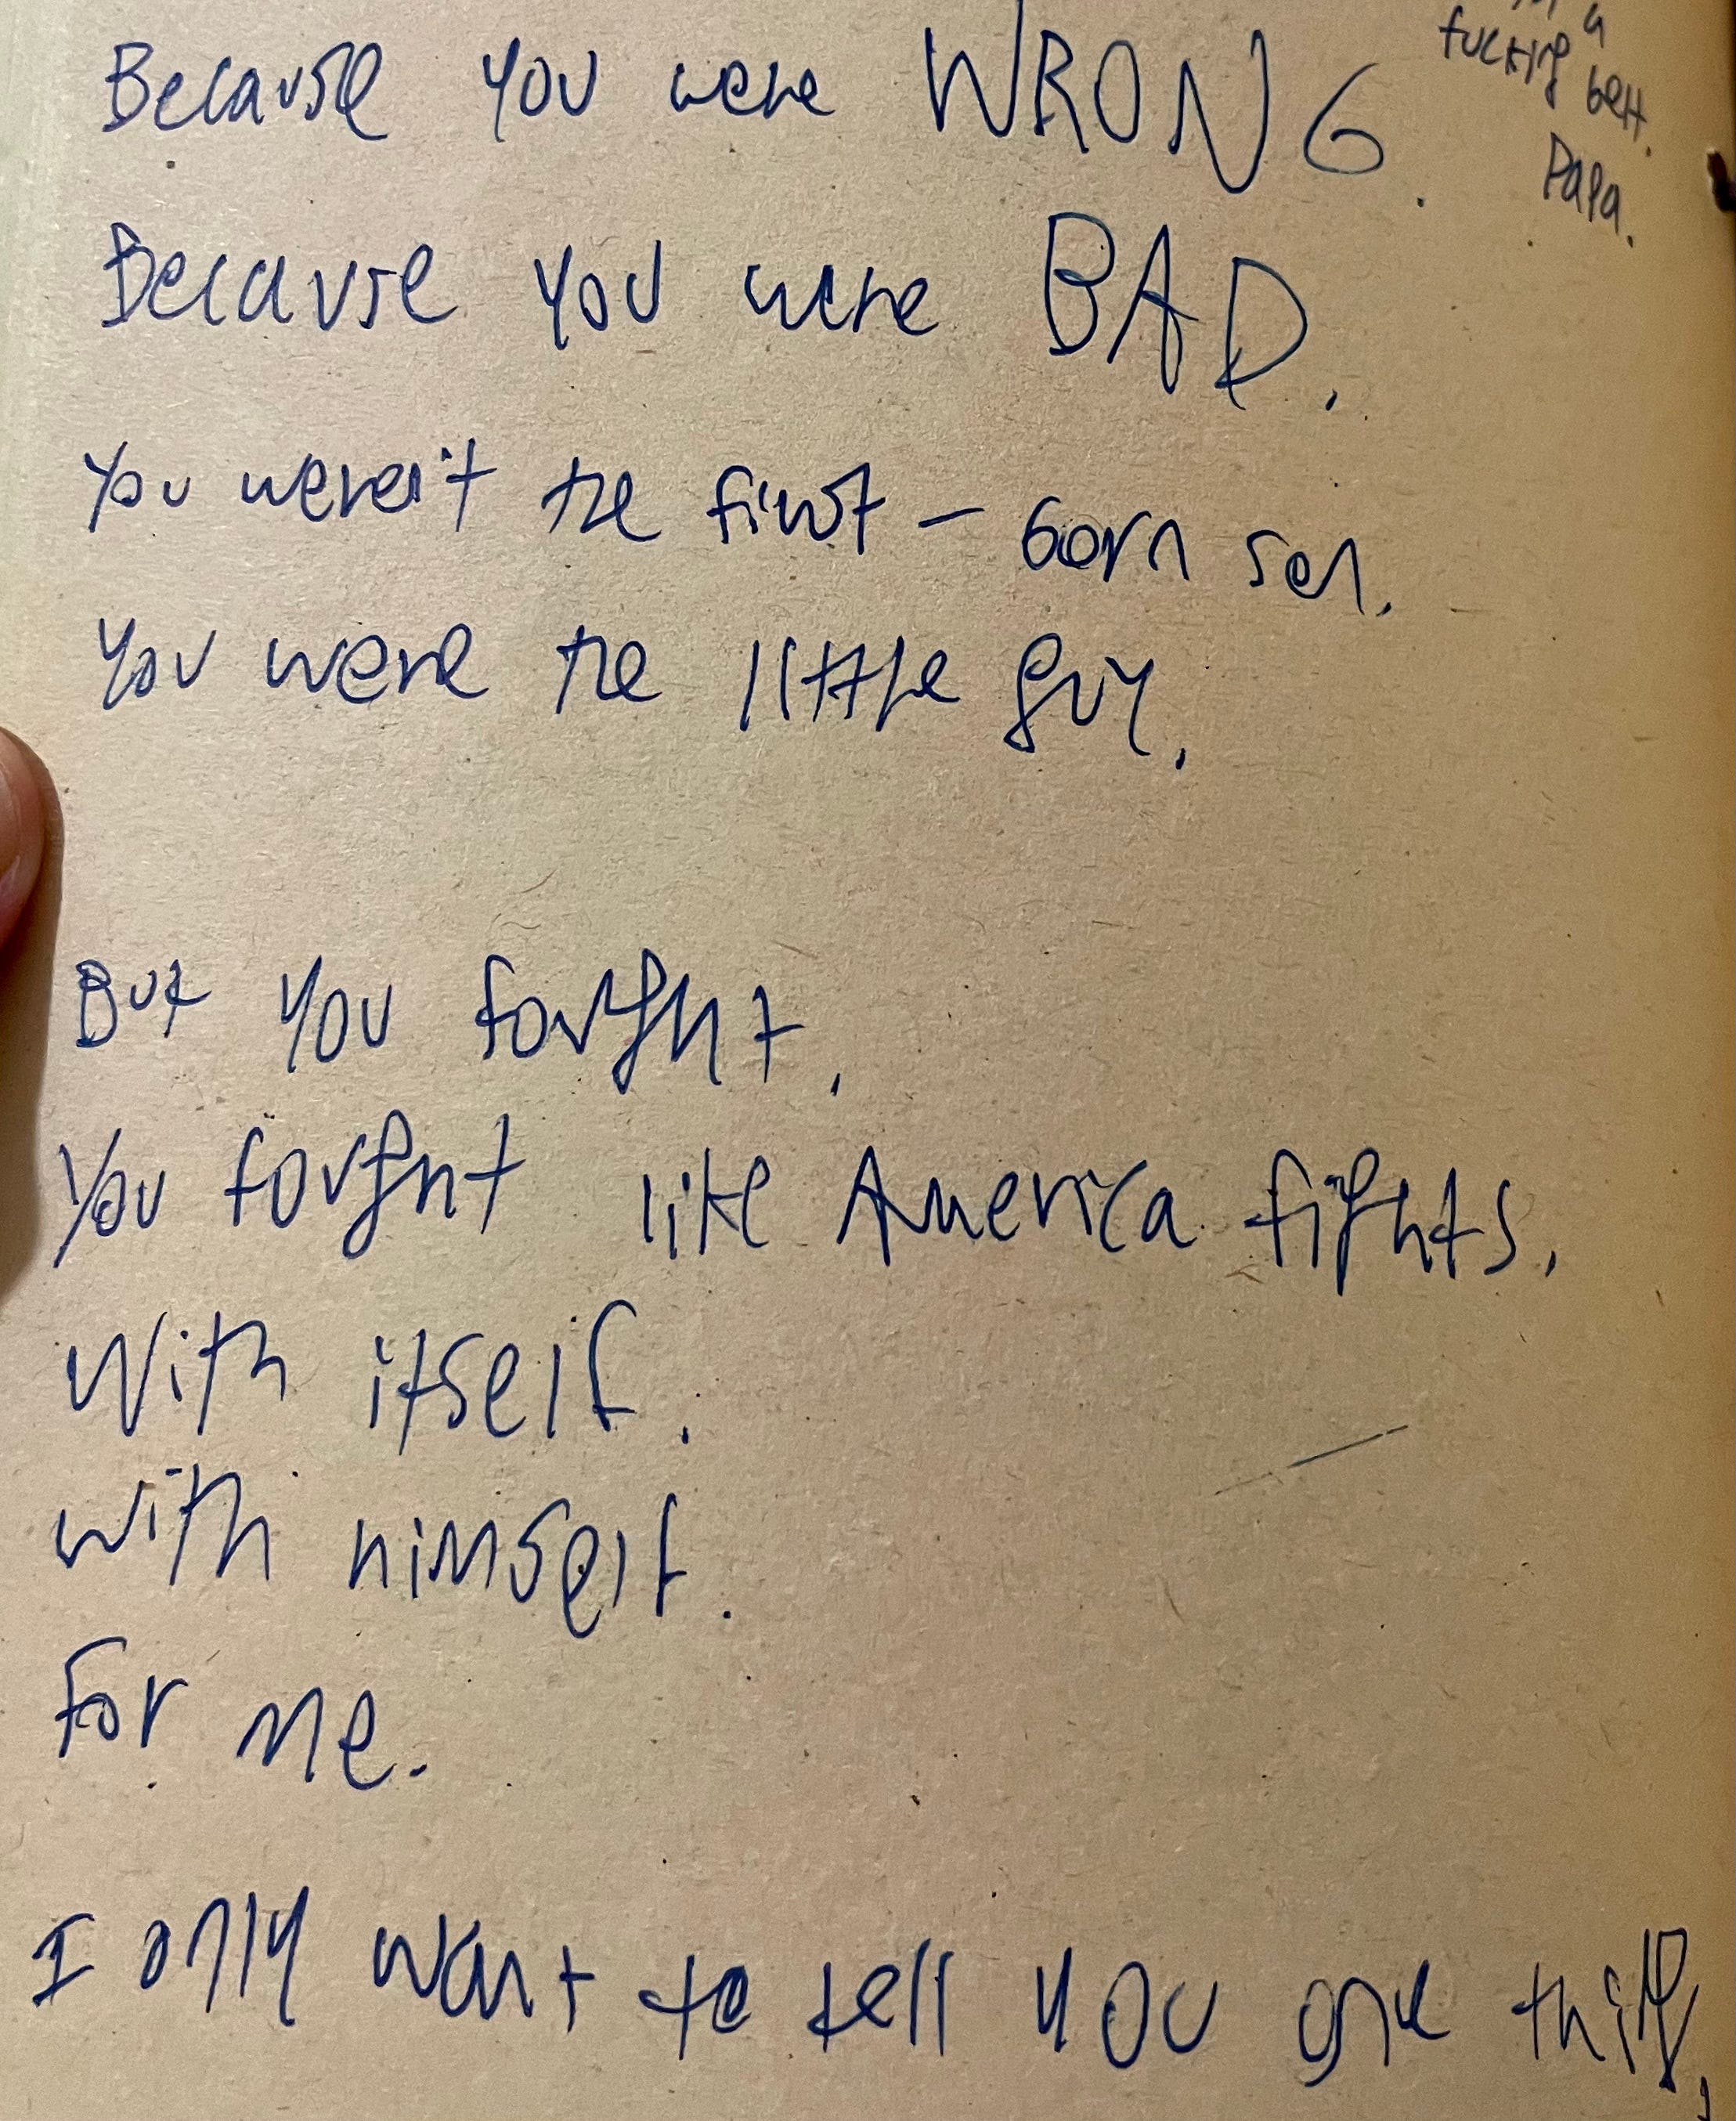 a
fucking belt.
Papa.
Because you were WRONG.
Because you were BAD.
You weren't the first - born son.
You were the little guy.
But you fought.
You fought like America fights.
With itself.
With himself.
For me.
I only want to tell you one thing,